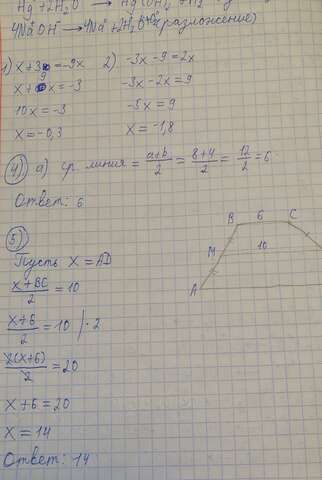 Hg + 2H₂O → Hg(OH)₂ + H₂
4NaOH → 4Na + 2H₂O (разложение)
1) x+3 = -9x 2) -3x -9 = 2x
x+9x = -3 -3x -2x = 9
10x = -3 -5x = 9
x = -0,3 x = -1,8
4) а) ср. линия = (a+b)/2 = (8+4)/2 = 12/2 = 6
Ответ: 6
B 6 C
5)
Пусть x = AD
M 10
(x+BC)/2 = 10
A
(x+6)/2 = 10 | · 2
2(x+6)/2 = 20
x+6 = 20
x = 14
Ответ: 14